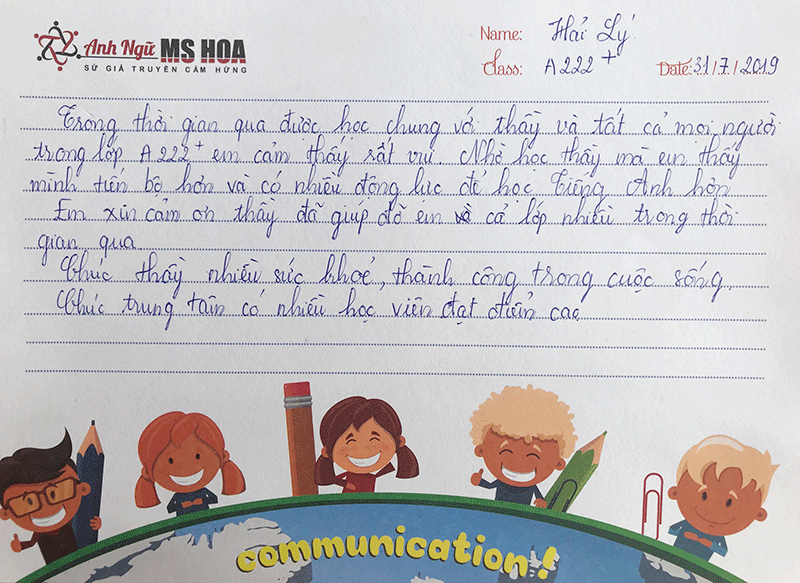 Anh Ngữ MS HOA
SỨ GIẢ TRUYỀN CẢM HỨNG
Name: Hải Lý
Class: A222+
Date: 31/7/2019
Trong thời gian qua được học chung với thầy và tất cả mọi người
trong lớp A222+ em cảm thấy rất vui. Nhờ học thầy mà em thấy
mình tiến bộ hơn và có nhiều động lực để học Tiếng Anh hơn
Em xin cảm ơn thầy đã giúp đỡ em và cả lớp nhiều trong thời
gian qua
Chúc thầy nhiều sức khoẻ, thành công trong cuộc sống.
Chúc trung tâm có nhiều học viên đạt điểm cao
communication!